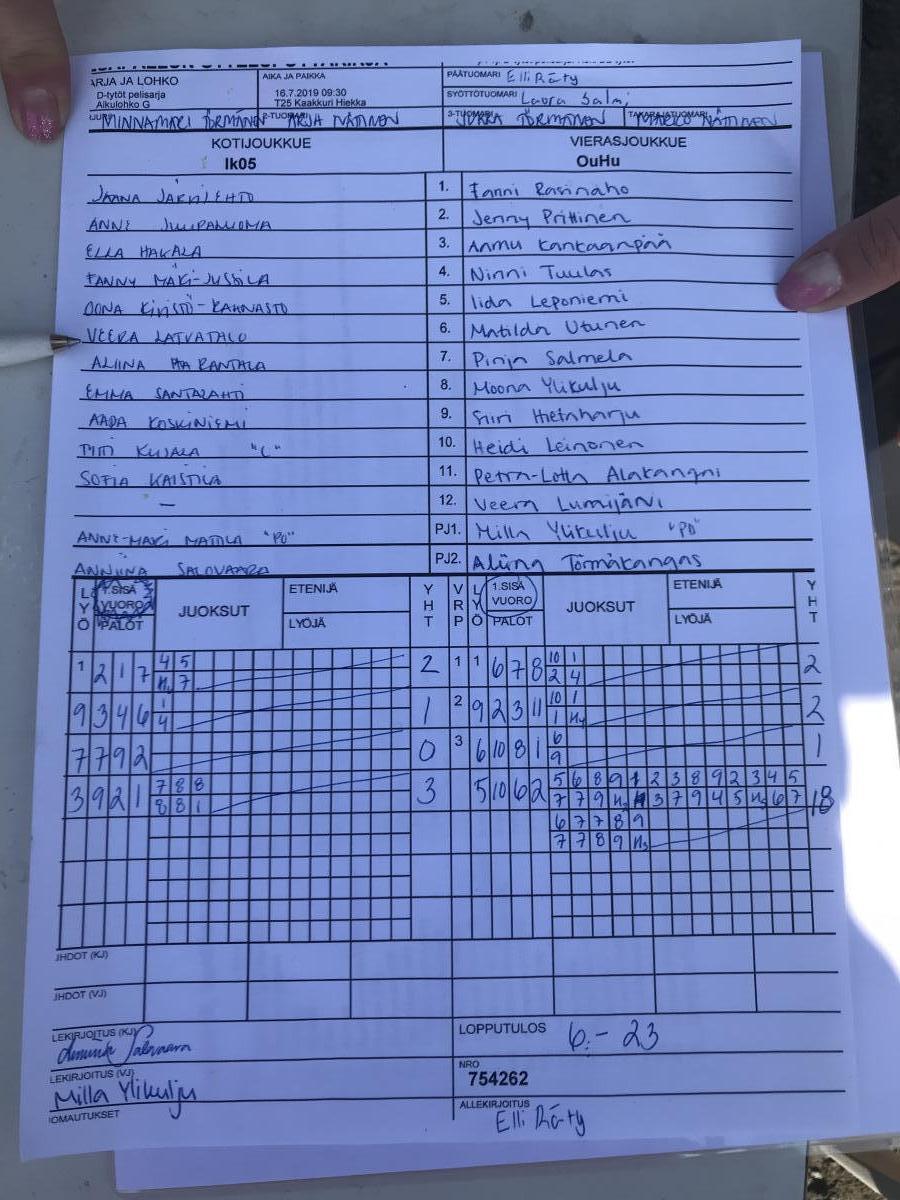 ARJA JA LOHKO
D-tytöt pelisarja
Aikulohko G
AIKA JA PAIKKA
16.7.2019 09:30
T25 Kaakkuri Hiekka
PÄÄTUOMARI Elli Räty
SYÖTTÖTUOMARI Laura Salmi
MINNAMARI TÖRMÄNEN 2-TUOMARI ARJA NÄTINEN 3-TUOMARI JUKKA TÖRMÄNEN TAKARAJATUOMARI MARKO NÄTINEN
KOTIJOUKKUE VIERASJOUKKUE
Ik05 OuHu
JAANA JÄRVILEHTO 1. Fanni Rasinaho
ANNI 2. Jenny Prittinen
ELLA HAKALA 3. Anmu Kankaanpää
FANNY MÄKI-JUSSILA 4. Ninni Tuulas
OONA KIVISTÖ-RAHNASTO 5. Iida Leponiemi
VEERA LATVATALO 6. Matilda Utunen
ALIINA HARANTALA 7. Pinja Salmela
EMMA SANTALAHTI 8. Moona Ylikulju
AADA KOSKINIEMI 9. Siiri Hietaharju
KUJALA "C" 10. Heidi Leinonen
SOFIA KAISTILA 11. Petra-Lotta Alakangas
— 12. Veera Lumijärvi
ANNE-MARI MATTILA "PJ" PJ1. Milla Ylikulju "PJ"
ANNIINA SALOVAARA PJ2. Aliina Törmäkangas
LYÖ 1.SISÄ VUORO PALOT JUOKSUT ETENIJÄ LYÖJÄ YHT VRP LYÖ 1.SISÄ VUORO PALOT JUOKSUT ETENIJÄ LYÖJÄ YHT
1 2 1 7 4 5 2 1 1 6 7 8 10 1 2
7 2 4
9 3 4 6 1 1 2 9 2 3 11 10 1 2
4 1
7 7 9 2 0 3 6 10 8 1 6 1
9
3 9 2 1 7 8 8 3 5 10 6 2 5 6 8 9 1 2 3 8 9 2 3 4 5 18
8 8 1 7 7 9 3 7 9 4 5 6 7
6 7 7 8 9
7 7 8 9
JHDOT (KJ)
JHDOT (VJ)
LEKIRJOITUS (KJ)
LOPPUTULOS 6 - 23
LEKIRJOITUS (VJ)
Milla Ylikulju
NRO
754262
OMAUTUKSET
ALLEKIRJOITUS
Elli Räty